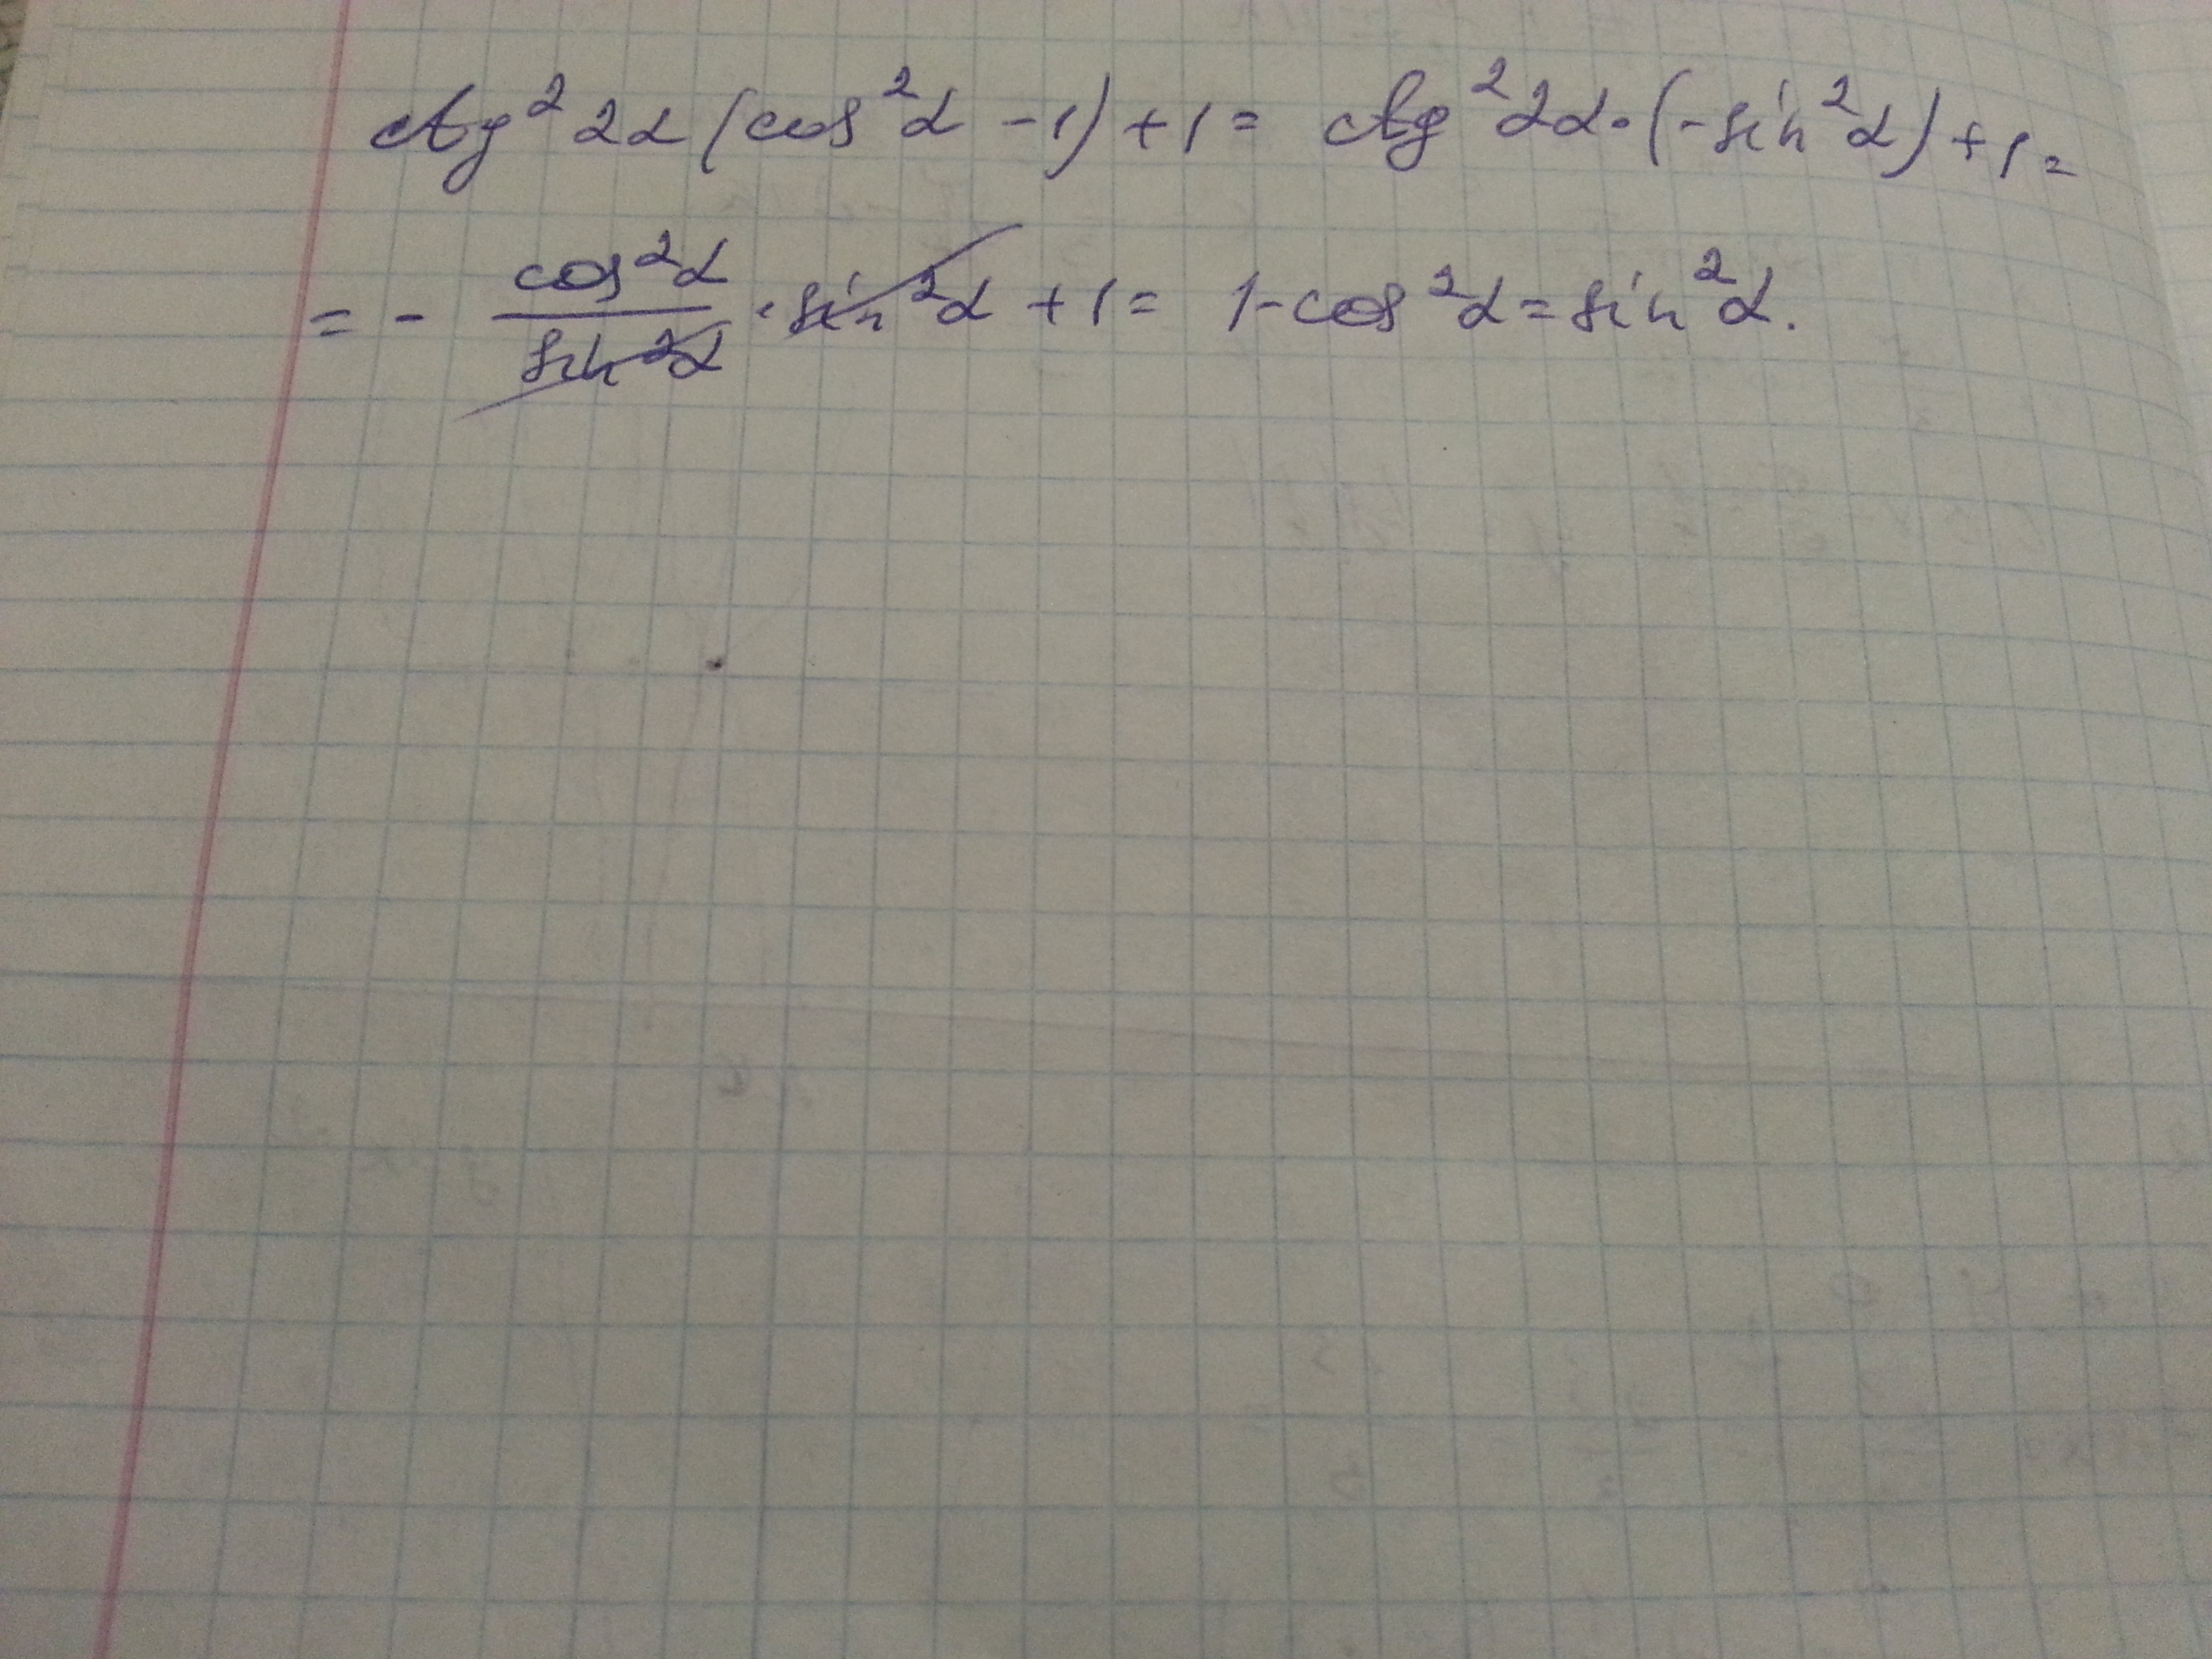 ctg² 2α (cos²α - 1) + 1 = ctg² 2α · (- sin²α) + 1 =
= - cos²α / sin²α · sin²α + 1 = 1 - cos²α = sin²α.